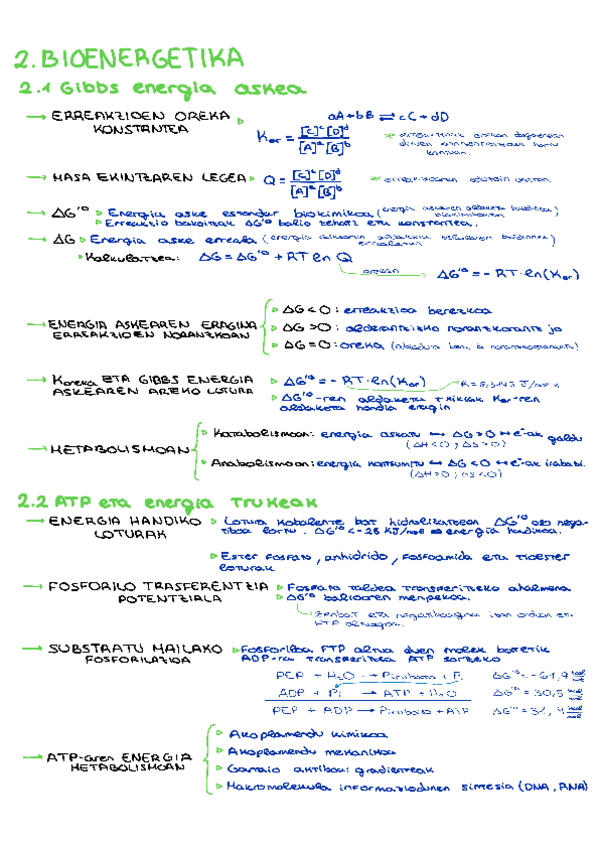 2. BIOENERGETIKA
2.1 Gibbs energia askea
→ ERREAKZIOEN OREKA KONSTANTEA ▹
aA+bB ⇌ cC+dD
Kor = [C]^c [D]^d / [A]^a [B]^b
→ MASA EKINTZAREN LEGEA ▹ Q = [C]^c [D]^d / [A]^a [B]^b
→ ΔG'° ▹ Energia aske estandar biokimikoa (energia askearen aldaketa
▹ Erreakzio bakoitzak ΔG'° balio zehatz eta konstantea.
→ ΔG ▹ Energia aske erreala (energia askearen aldaketa
▹ Kalkulatzea: ΔG = ΔG'° + RT ln Q
orekan → ΔG'° = - RT·ln(Kor)
→ ENERGIA ASKEAREN ERAGINA ERREAKZIOEN NORANTZKOAN
▹ ΔG < 0 : erreakzioa berezkoa
▹ ΔG > 0 : alderantzizko norantzkorantz jo
▹ ΔG = 0 : oreka
→ Koreka ETA GIBBS ENERGIA ASKEAREN ARTEKO LOTURA
▹ ΔG'° = - RT·ln(Kor)
▹ ΔG'°-ren aldaketa txikiak Kor-ren
aldaketa handia eragin
→ METABOLISMOAN
▹ Katabolismoan: energia askatu ↔ ΔG > 0 ↔ e⁻ak galdu
(ΔH<0 ; ΔS>0)
▹ Anabolismoan: energia kontsumitu ↔ ΔG < 0 ↔ e⁻ak irabazi
(ΔH>0 ; ΔS<0)
2.2 ATP eta energia TRUKEAK
→ ENERGIA HANDIKO LOTURAK
▹ Lotura kobalente bat hidrolizatzean ΔG'° oso nega-
tiboa lortu. ΔG'° < -25 KJ/mol energia handikoa.
▹ Ester fosfato, anhidrido, fosfoamida eta tioester
loturak
→ FOSFORILO TRASFERENTZIA POTENTZIALA
▹ Fosfato taldea transferitzeko ahalmena
▹ ΔG'° balioaren menpekoa.
→ SUBSTRATU MAILAKO FOSFORILAZIOA
▹ Fosforiloa FTP altua duen molek batetik
ADP-ra transferitzea ATP sortzeko
PEP + H₂O → Pirubato + Pi ΔG'° = -61,9
ADP + Pi → ATP + H₂O ΔG'° = 30,5
PEP + ADP → Pirubato + ATP ΔG'° = 31,4
→ ATP-aren ENERGIA METABOLISMOAN
▹ Akoplamendu kimikoa
▹ Akoplamendu mekanikoa
▹ Garraio aktiboa: gradienteak
▹ Makromolekula informaziodunen sintesia (DNA, RNA)